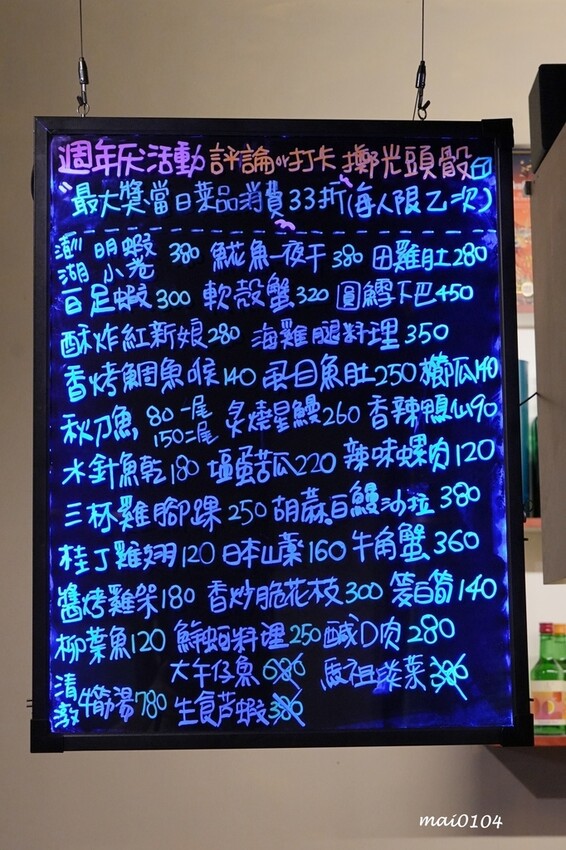 週年庆活動 評論or打卡 擲光頭骰
最大獎當日菜品消費33折(每人限乙次)
澎湖 明蝦小卷 380 魠魚一夜干 380 田雞肚280
百足蝦300 軟殼蟹320 圓鱈下巴450
酥炸紅新娘280 海雞腿料理350
香烤鯛魚喉140 虱目魚肚250 櫛瓜140
秋刀魚 80一尾 150二尾 炙燒星鰻260 香辣鴨心90
水針魚乾180 塩蛋苦瓜220 辣味螺肉120
三杯雞腳踝250 胡蔴白鰻沙拉380
桂丁雞翅120 日本山藥160 牛角蟹360
醬烤雞架180 香炒脆花枝300 筊白筍140
柳葉魚120 鮮蚵料理250 鹹D肉280
大午仔魚680 馬祖淡菜380
清燉牛筋湯780 生食芦蝦380
mai0104